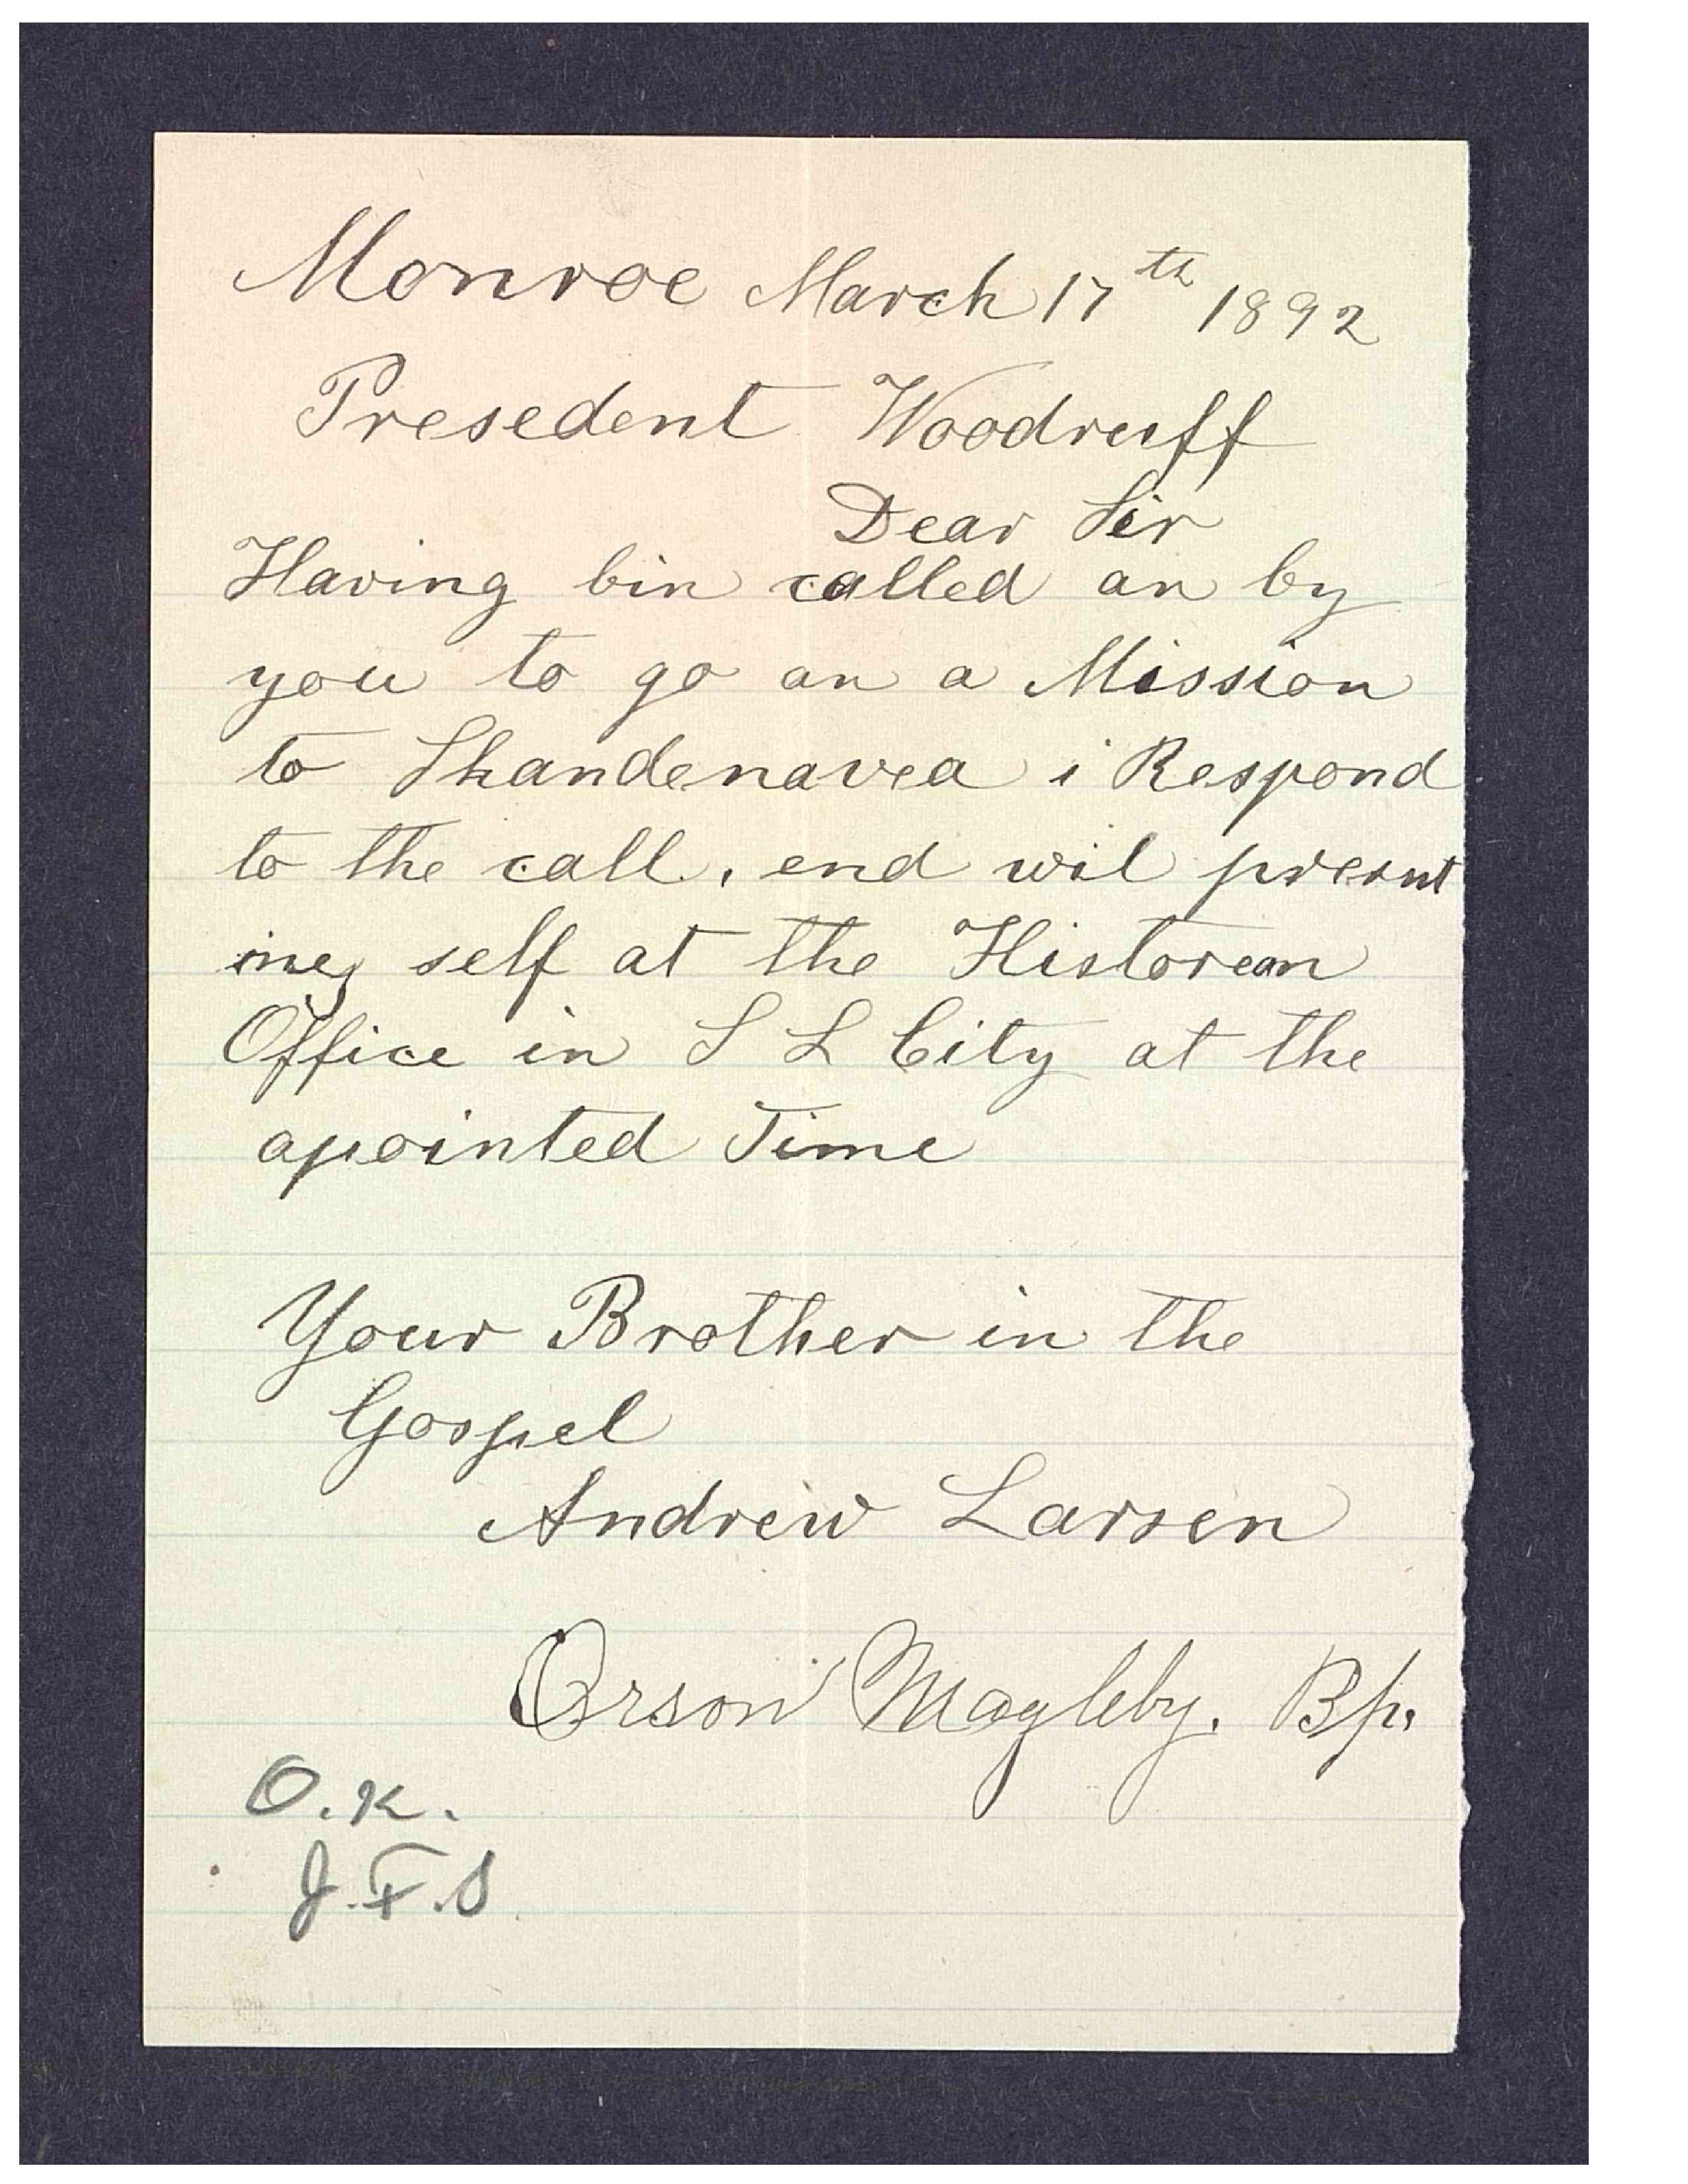 Monroe March 17th 1892
Presedent Woodruff
Dear Sir
Having bin called an by
you to go an a Mission
to Skandenavea i Respond
to the call, end wil presnt
mey self at the Historean
Office in S L City at the
apointed Time
Your Brother in the
Gospel
Andrew Larsen
Orson Magleby. Bp.
O.K.
J.F.S